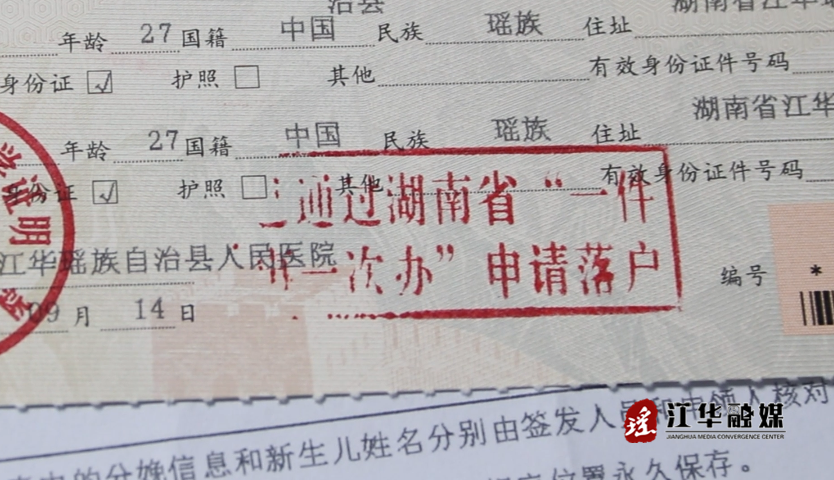 治县
湖南省江华
年龄 27 国籍 中国 民族 瑶族 住址
身份证 ☑ 护照 □ 其他 有效身份证件号码
湖南省江华
年龄 27 国籍 中国 民族 瑶族 住址
身份证 ☑ 护照 □ 其他 有效身份证件号码
通过湖南省“一件
证明
江华瑶族自治县人民医院
一次办”申请落户
编号 *
09 月 14 日
瑶 江华融媒
JIANGHUA MEDIA CONVERGENCE CENTER
的分娩信息和新生儿姓名分别由签发人员和申领人核对
位置永久保存。